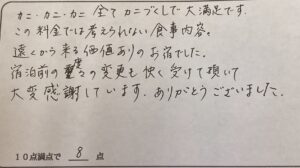 カニ・カニ・カニ 全てカニづくしで大満足です。
この料金では考えられない食事内容。
遠くから来る価値ありのお宿でした。
宿泊前の度々の変更も快く受けて頂いて
大変感謝しています。ありがとうございました。
10点満点で 8 点